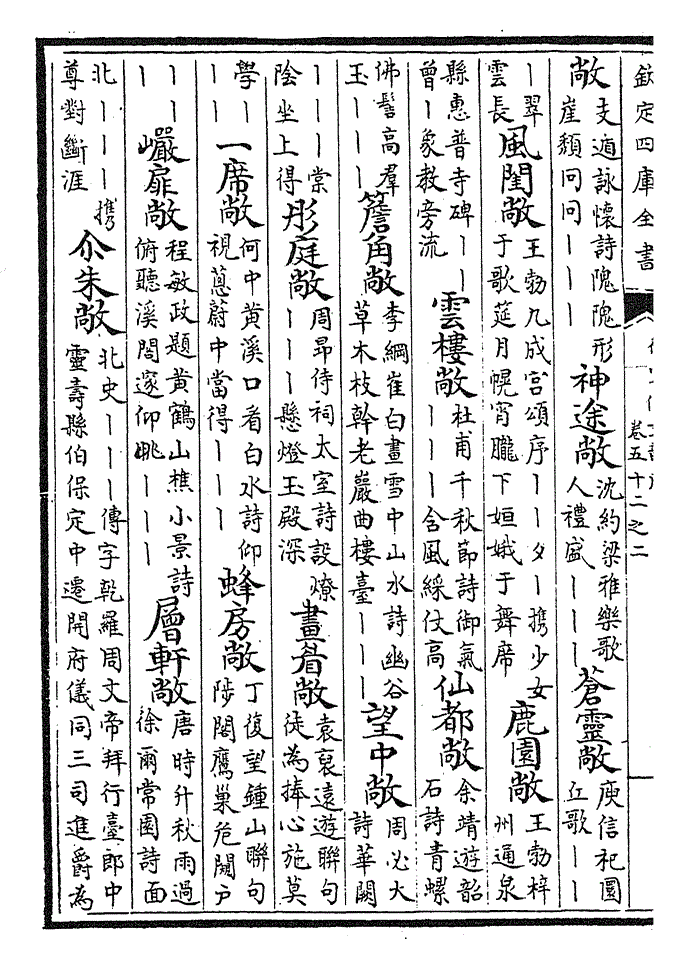 欽定四庫全書
卷五十二之二
敞
支遁詠懷詩隗隗形
崖頽冋冋丨丨丨
神途敞
沈約梁雅樂歌
人禮盛丨丨丨
蒼靈敞
庾信祀圜
丘歌丨丨
丨翠
雲長
風閨敞
王勃九成宮頌序丨丨夕丨携少女
于歌筵月幌宵朧下姮娥于舞席
鹿園敞
王勃梓
州通泉
縣惠普寺碑丨丨
曾丨象教旁流
雲樓敞
杜甫千秋節詩御氣
丨丨丨含風綵仗高
仙都敞
余靖遊韶
石詩青螺
佛髻高羣
玉丨丨丨
簷角敞
李綱崔白畫雪中山水詩幽谷
草木枝幹老巖曲樓臺丨丨丨
望中敞
周必大
詩華闕
丨丨丨棠
陰坐上得
彤庭敞
周昂侍祠太室詩設燎
丨丨丨懸燈玉殿深
畫省敞
袁裒遠遊聯句
徒為捧心施莫
學丨丨
一席敞
何中黄溪口看白水詩仰
視蒽蔚中當得丨丨丨
蜂房敞
丁復望鍾山聯句
陟閣鷹巢危闢户
丨丨
丨丨
巘扉敞
程敏政題黄鶴山樵小景詩
俯聽溪閤邃仰眺丨丨丨
層軒敞
唐時升秋雨過
徐爾常園詩面
北丨丨丨携
尊對斷涯
尒朱敞
北史丨丨丨傳字乾羅周文帝拜行臺郎中
靈壽縣伯保定中遷開府儀同三司進爵為